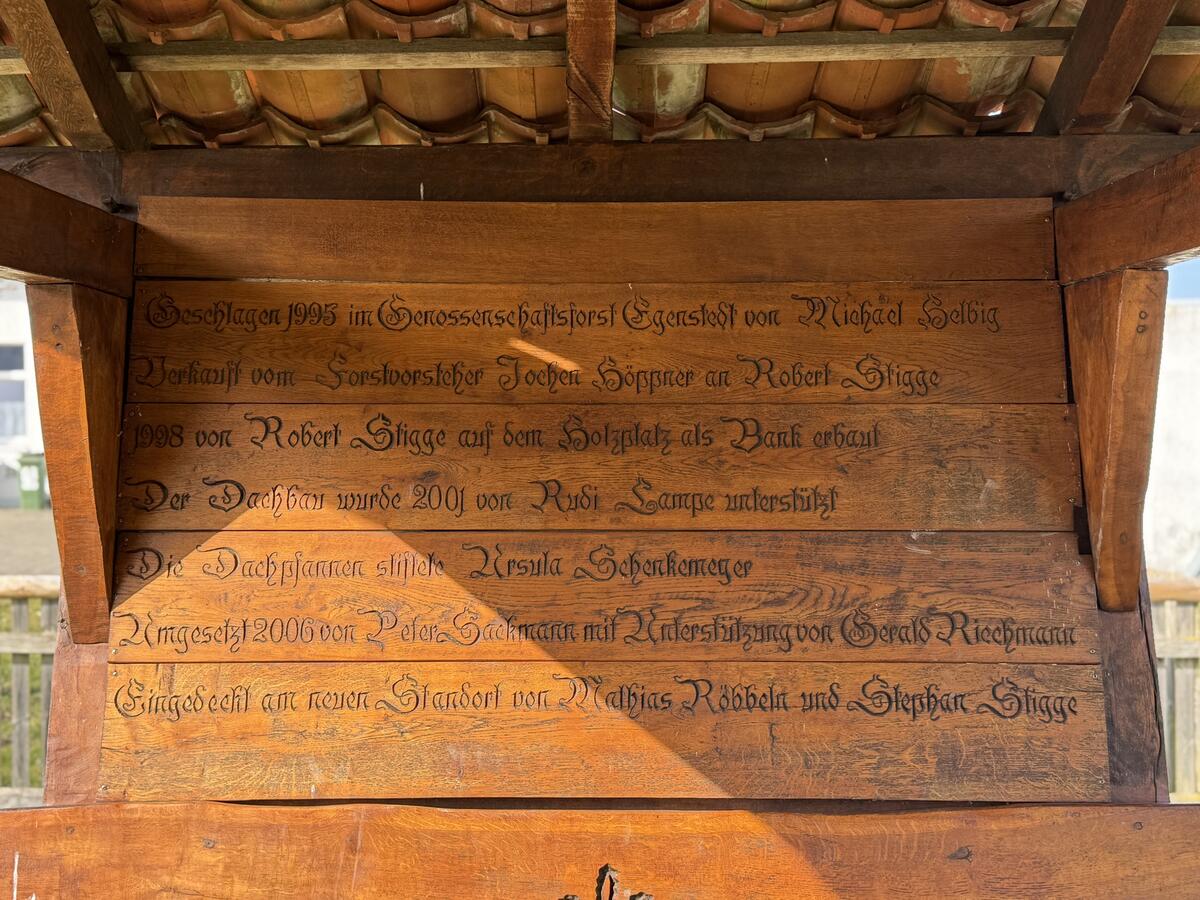 Geschlagen 1995 im Genossenschaftsforst Egenstedt von Michael Helbig
Verkauft vom Forstvorsteher Jochen Höppner an Robert Stigge
1998 von Robert Stigge auf dem Holzplatz als Bank erbaut
Der Dachbau wurde 2001 von Rudi Lampe unterstützt
Die Dachpfannen stiftete Ursula Schenkemeyer
Umgesetzt 2006 von Peter Sackmann mit Unterstützung von Gerald Riechmann
Eingedeckt am neuen Standort von Mathias Röbbeln und Stephan Stigge